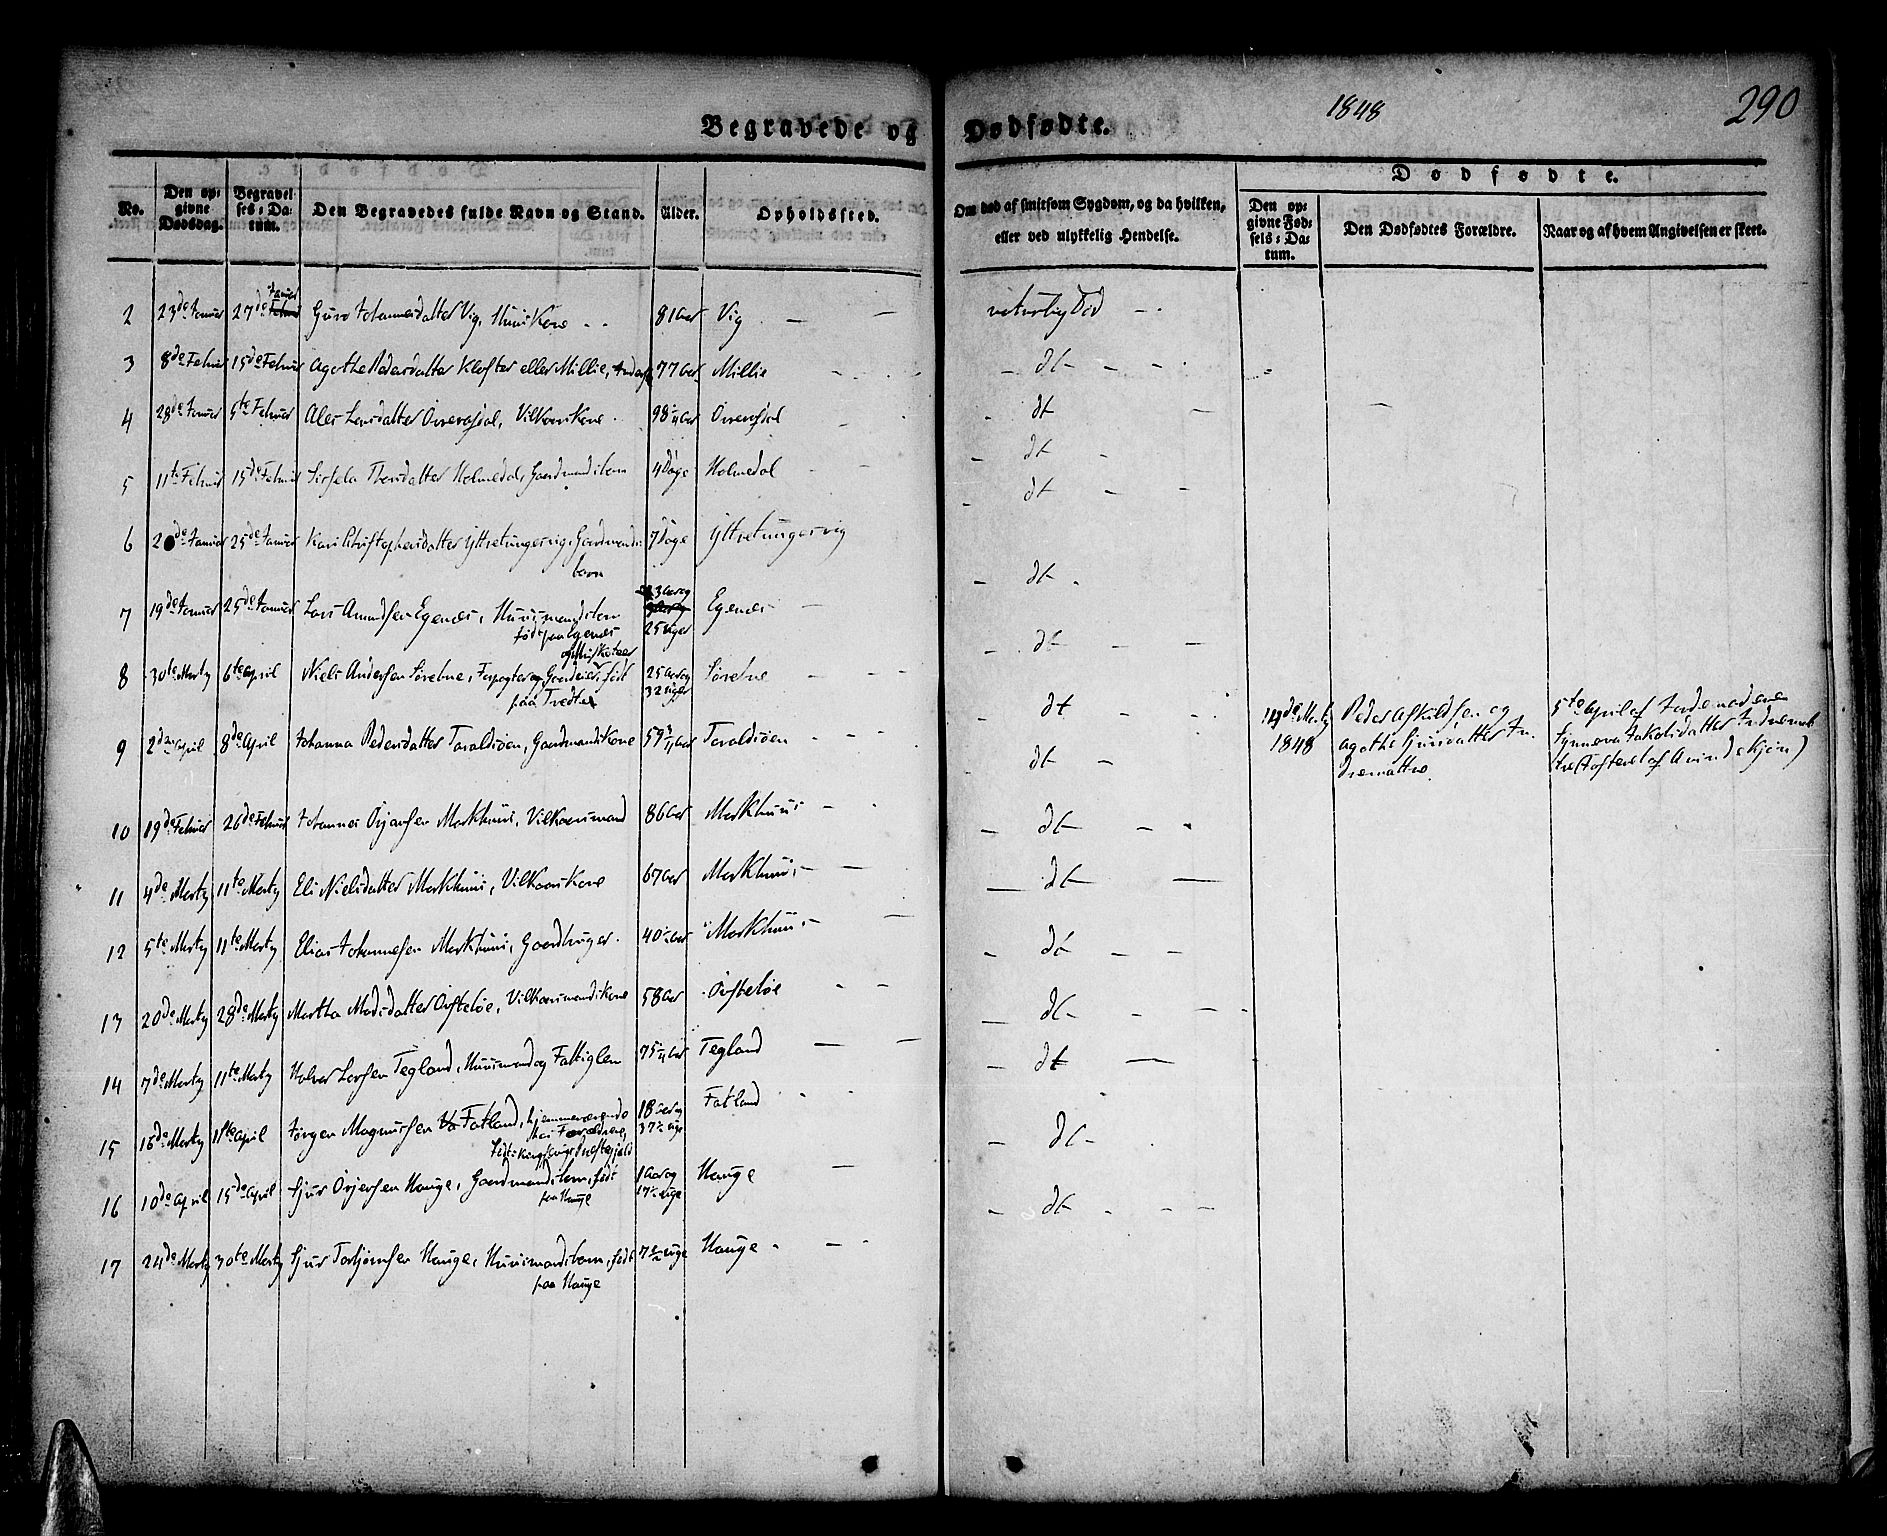 1848
290
Begravede og Dødfødte.
No.
Den op-
givne
Dødsdag.
Begravel-
ses-Da-
tum.
Den Begravedes fulde Navn og Stand.
Alder.
Opholdssted.
Om død af smitsom Sygdom, og da hvilken,
eller ved ulykkelig Hendelse.
Dødfødte.
Den op-
givne Fød-
sels-Da-
tum.
Den Dødfødtes Forældre.
Naar og af hvem Angivelsen er skeet.
2 23de Januar 27de Januar Guro Johannesdatter Vig, Huuskone 81 Aar Vig naturlig Død
3 8de Februar 15de Februar Agathe Pedersdatter Kloster eller Millie, 77 Aar Millie dt
4 28de Januar 5te Februar Larsdatter Vilkaarskone 98 Aar dt
5 11te Februar 15de Februar Holmedal, Gaardmandsbarn 4 Døge Holmedal dt
dt
6 25de Januar Kari Christophersdatter Yttretungesvig, Gaardmands-
barn
7 Døge Yttretungesvig dt
7 19de Januar 25de Januar Lars Amundsen Egenes, Huusmandsbarn
født paa Egenes
3 Aar og
25 Uger
Egenes dt
8 30te Martz 6te April Niels Andersen Sørebøe, Gaardeier, født
paa
25 Aar og
32 Uger
Sørebøe dt
9 2den April 8de April Johanna Pedersdatter Taraldsøen, Gaardmandskone 57 Aar Taraldsøen dt
14de Martz
1848
Peder Askildsen og
Agathe Sjursdatter In-
dremattre.
5te April af Jordemoderen
Synneva Jakobsdatter Indremat-
tre
10 19de Februar 26de Februar Johannes Ørjansen Markhuus, Vilkaarsmand 86 Aar Markhuus dt
11 4de Martz 11te Martz Eli Nielsdatter Markhuus, Vilkaarskone 67 Aar Markhuus dt
12 5te Martz 11te Martz Elias Johannesen Markhuus, Gaardbruger 40 Aar Markhuus dt
13 20de Martz 28de Martz Martha Madsdatter Øisteløe, Vilkaarsmandskone 58 Aar Øisteløe dt
14 7de Martz 11te Martz Halvor Larsen Tegland, Huusmand og Fattiglem 75 Aar Tegland dt
15 18de Martz 11te April Jørgen Magnusen Fatland, hjemmeværende
hos Forældrene,
18 Aar og
37 Uge
Fatland dt
16 10de April 15de April Sjur Ørjansen Hauge, Gaardmandsbarn, født
paa Hauge
1 Aar og
17 Uge
Hauge dt
17 24de Martz 30te Martz Sjur Torbjørnsen Hauge, Huusmandsbarn, født
paa Hauge
7 Uge Hauge